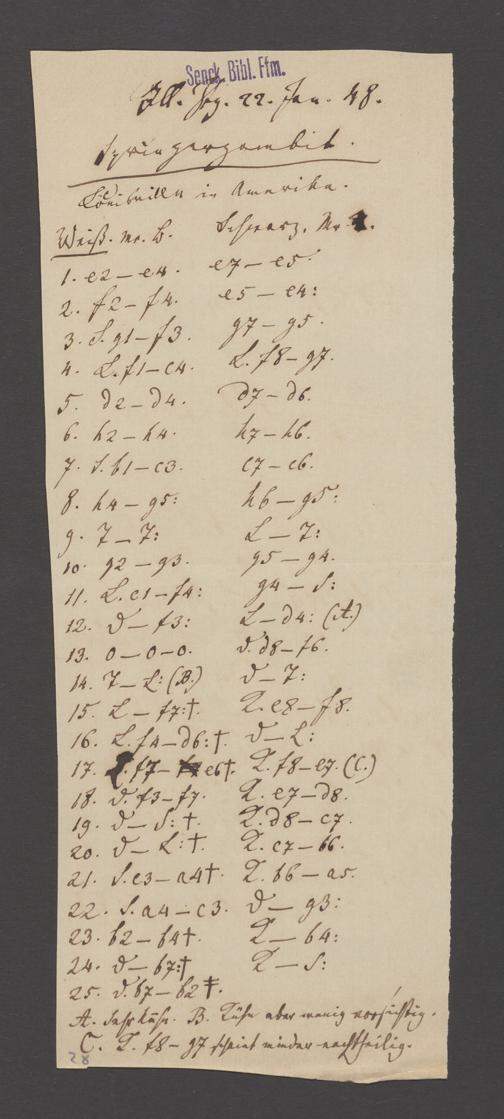 Senck. Bibl. Ffm.
Ill. Zeg. 22. Jan. 48.
Springergambit.
Louisville in Amerika.
Weiß. Mr. B. Schwarz. Mr.
1. e2 – e4. e7 – e5
2. f2 – f4. e5 – e4:
3. S. g1 – f3. g7 – g5.
4. L. f1 – c4. L. f8 – g7.
5. d2 – d4. d7 – d6.
6. h2 – h4. h7 – h6.
7. S. b1 – c3. c7 – c6.
8. h4 – g5: h6 – g5:
9. T – T: L – T:
10. g2 – g3. g5 – g4.
11. L. c1 – f4: g4 – S:
12. D – f3: L – d4: (A.)
13. 0 – 0 – 0. D. d8 – f6.
14. T – L: (B.) D – T:
15. L – f7:†. K. e8 – f8.
16. L. f4 – d6:†. D – L:
17. L. f7 – e6†. K. f8 – e7. (C.)
18. D. f3 – f7. K. e7 – d8.
19. D – S: †. K. d8 – c7.
20. D – L: †. K. c7 – b6.
21. S. c3 – a4† K. b6 – a5.
22. S. a4 – c3. D – g3:
23. b2 – b4†. K – b4:
24. D – b7:† K – S:
25. D. b7 – b2 ‡.
A. Sehr kühn. B. Kühn aber wenig vorsichtig.
C. K. f8 – g7 scheint minder nachtheilig.
28